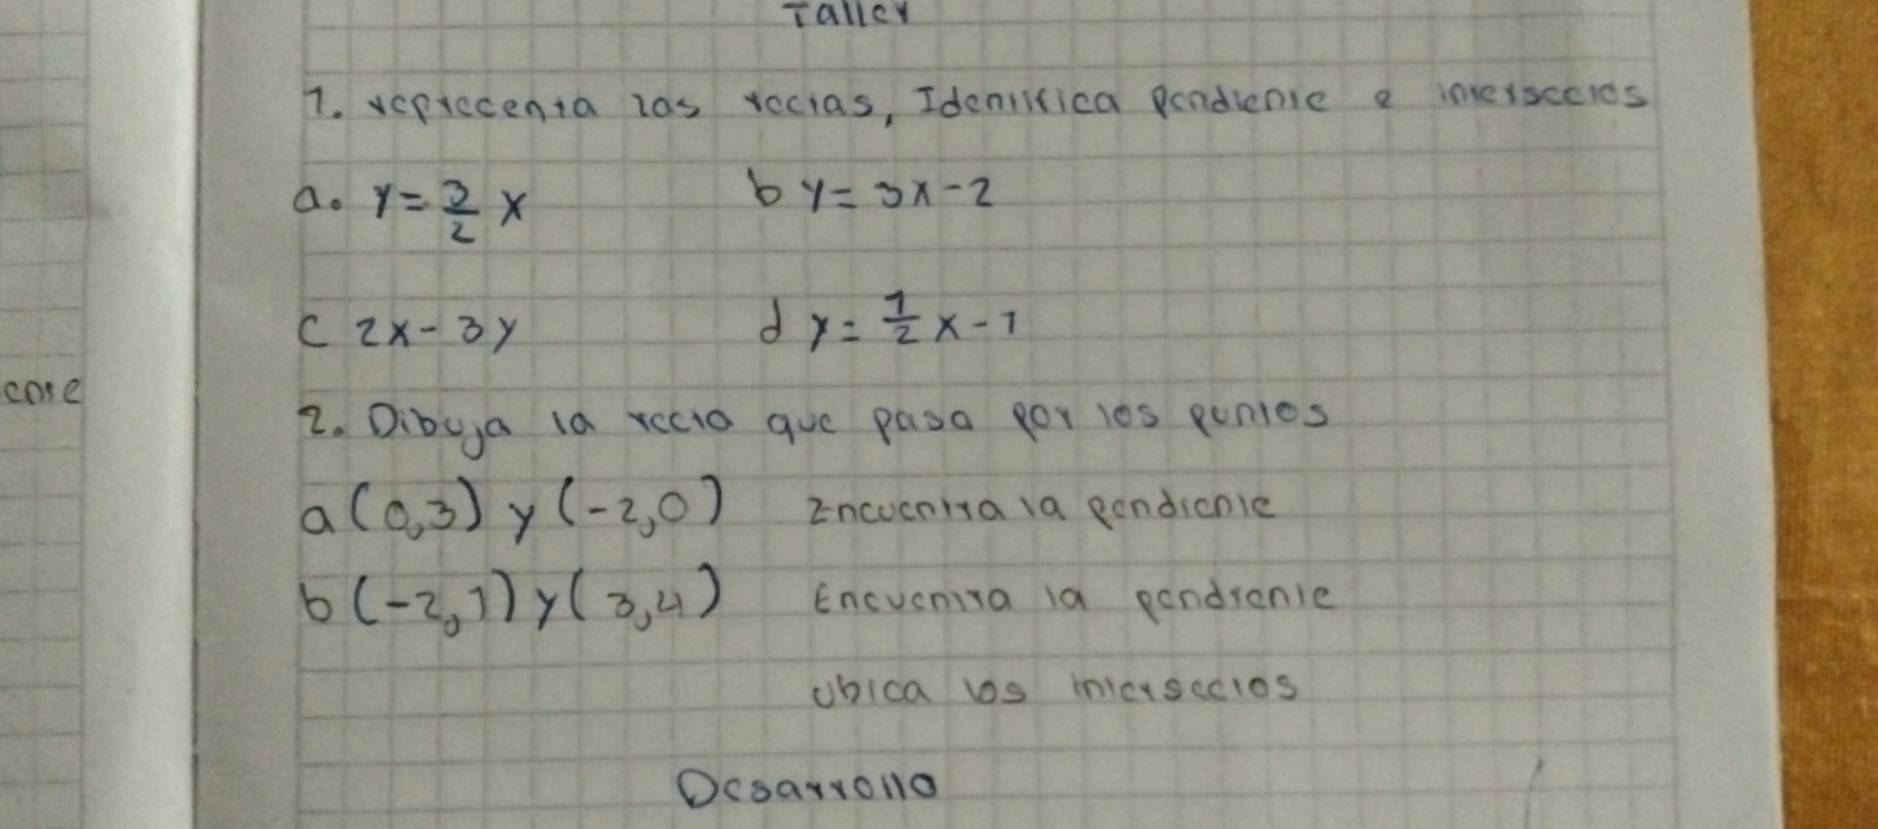 Taller
1. representa las rectas, Identifica pendiente e intersectos
a. y = 3/2 x b y = 3x - 2
c 2x - 3y d y = 1/2 x - 1
core
2. Dibuja la recta que pasa por los puntos
a (0,3) y (-2,0) Encuentra la pendiente
b (-2,1) y (3,4) Encuentra la pendiente
ubica los intersectos
Desarrollo